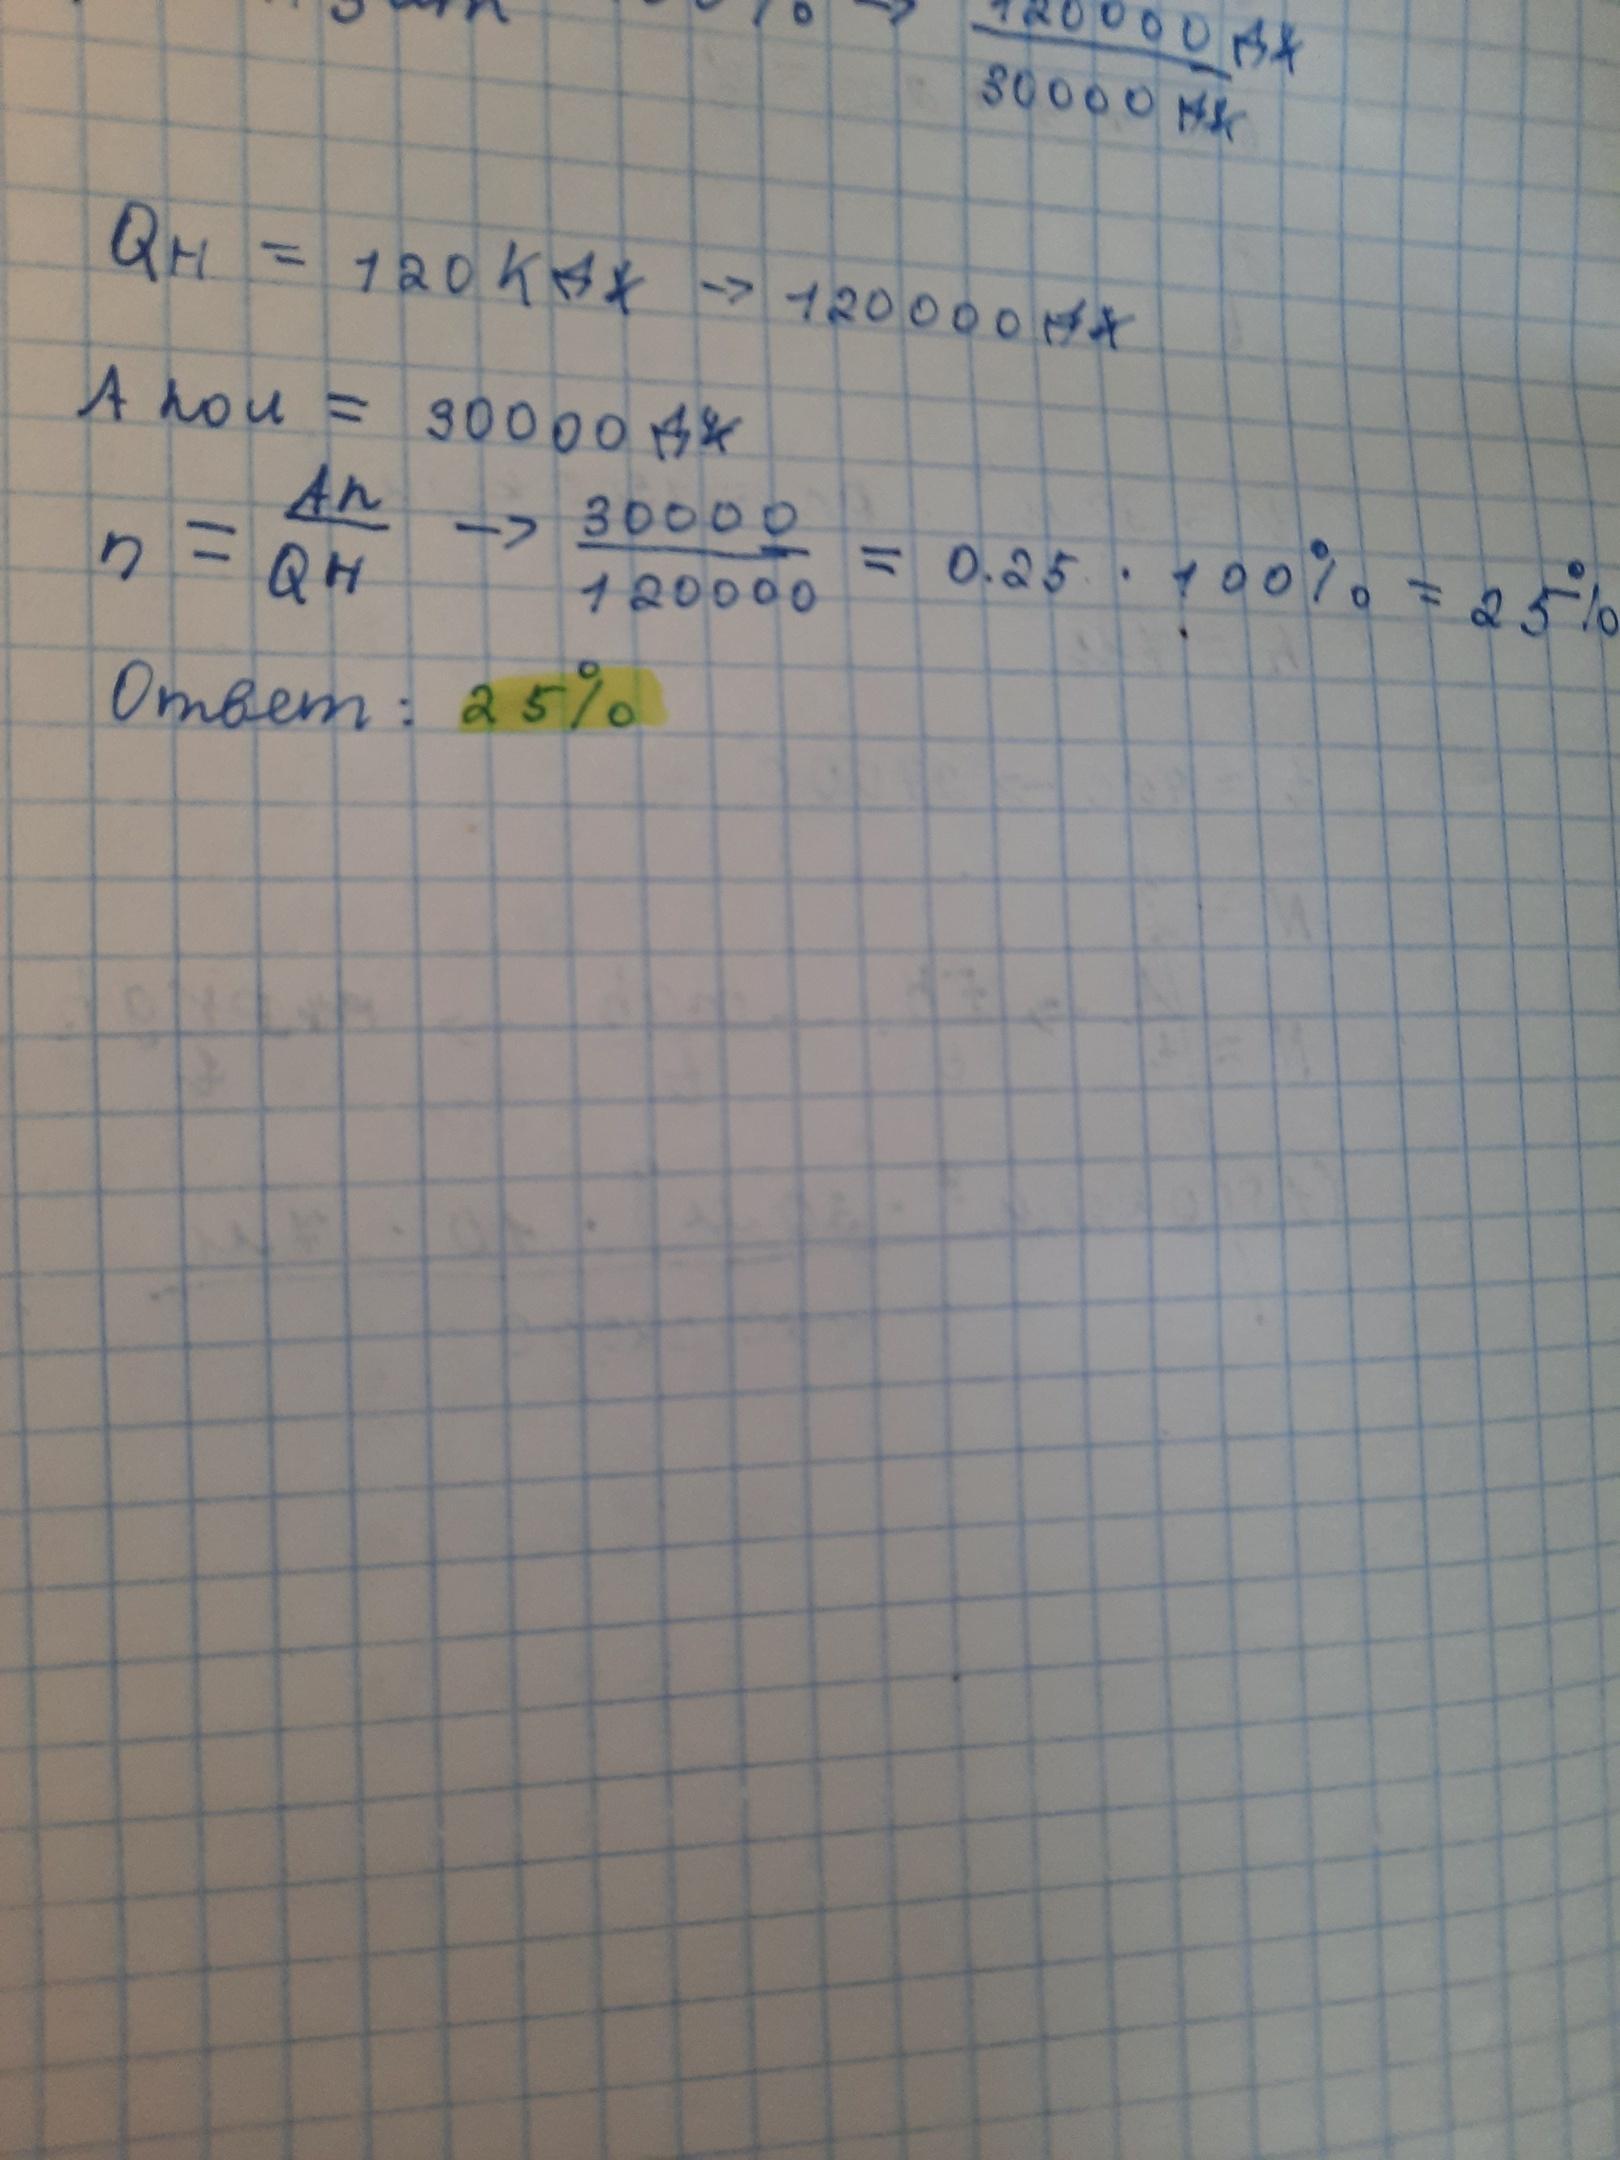 120000 Дж
30000 Дж
Qн = 120 кДж -> 120000 Дж
A пол = 30000 Дж
n = Ап/Qн -> 30000/120000 = 0.25 · 100% = 25%
Ответ: 25%